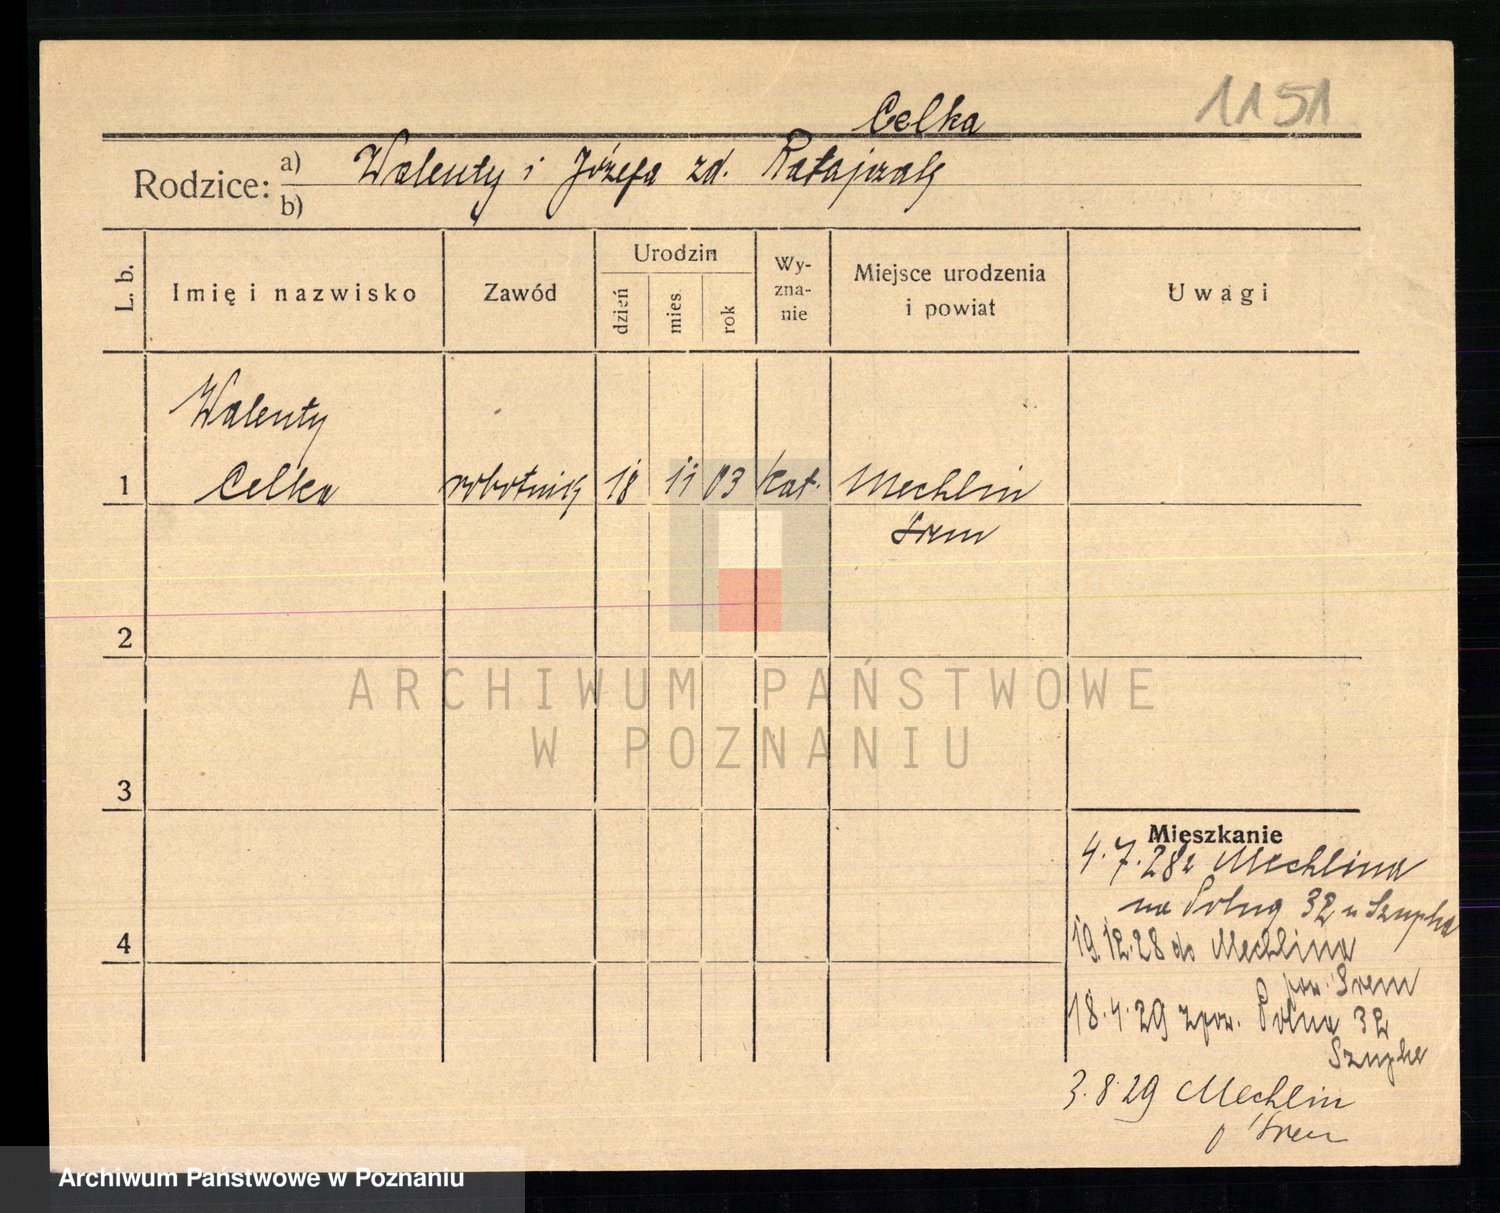 1151
Celka
Rodzice: a) Walenty i Józefa zd. Ratajczak
b)
L. b.
Imię i nazwisko
Zawód
Urodzin
dzień
mies
rok
Wy-
zna-
nie
Miejsce urodzenia
i powiat
Uwagi
Walenty
1 Celka robotnik 18 11 03 kat. Mechlin
Śrem
2
3
4
ARCHIWUM PAŃSTWOWE
W POZNANIU
Mieszkanie
4.7.28 z Mechlina
na Polną 32 u Szupka
19.12.28 do Mechlina
pow. Śrem
18.4.29 zpow. Polna 32
3.8.29 Mechlin
p Śrem
Archiwum Państwowe w Poznaniu